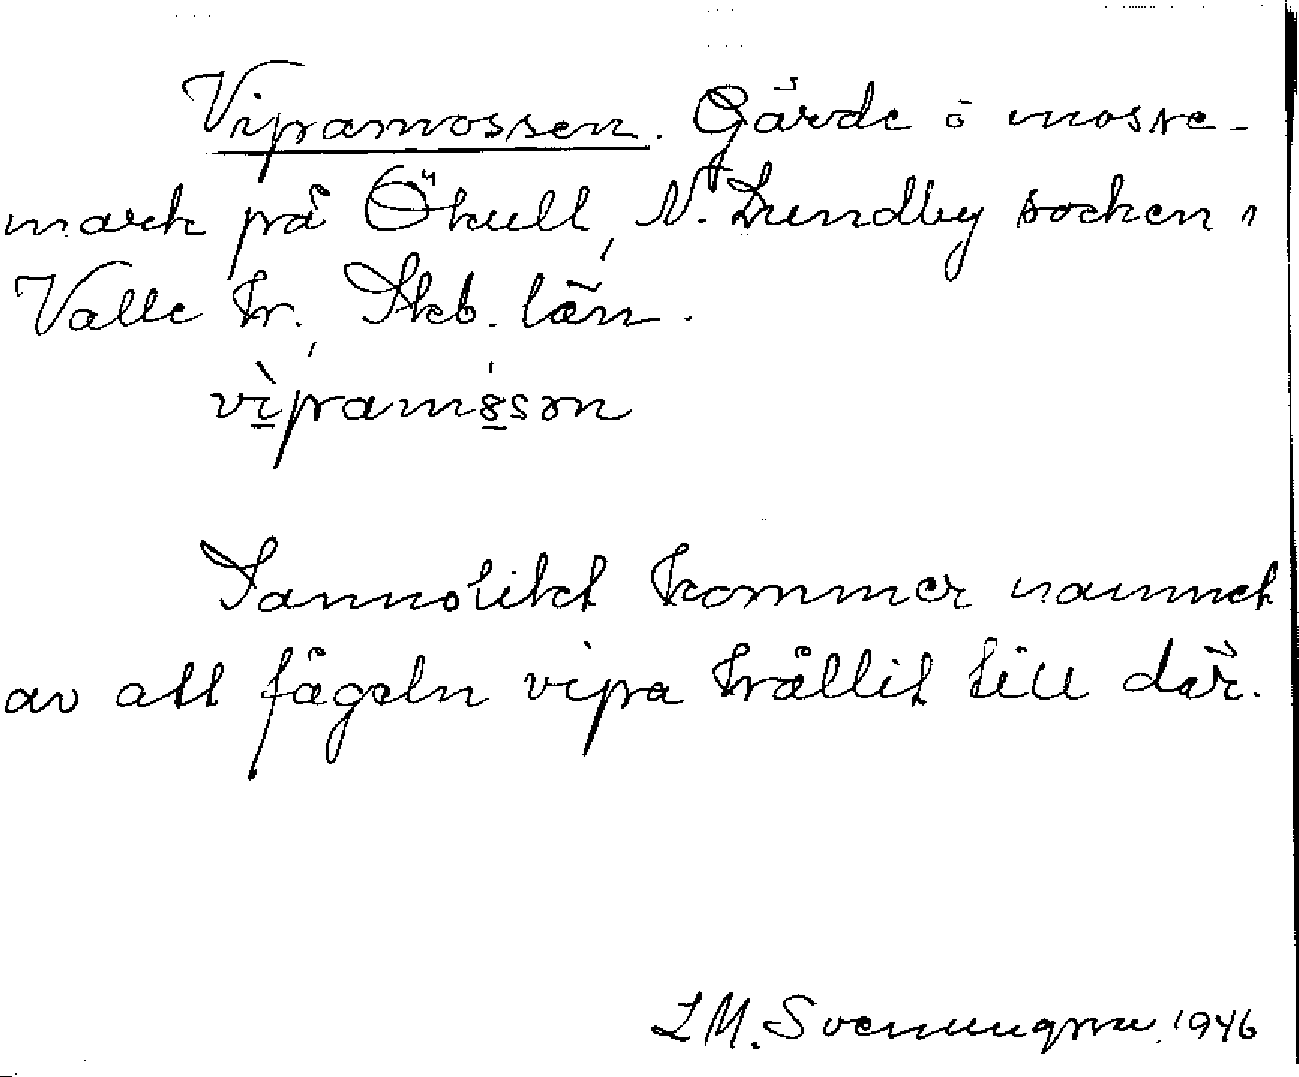 Vipamossen. Gärde å mosse-
mark på Ökull, N. Lundby socken i
Valle hr. Skb. län.
vìpamȣsən
Sannolikt kommer namnet
av att fågeln vipa hållit till där.
L M. Svenungsson 1946